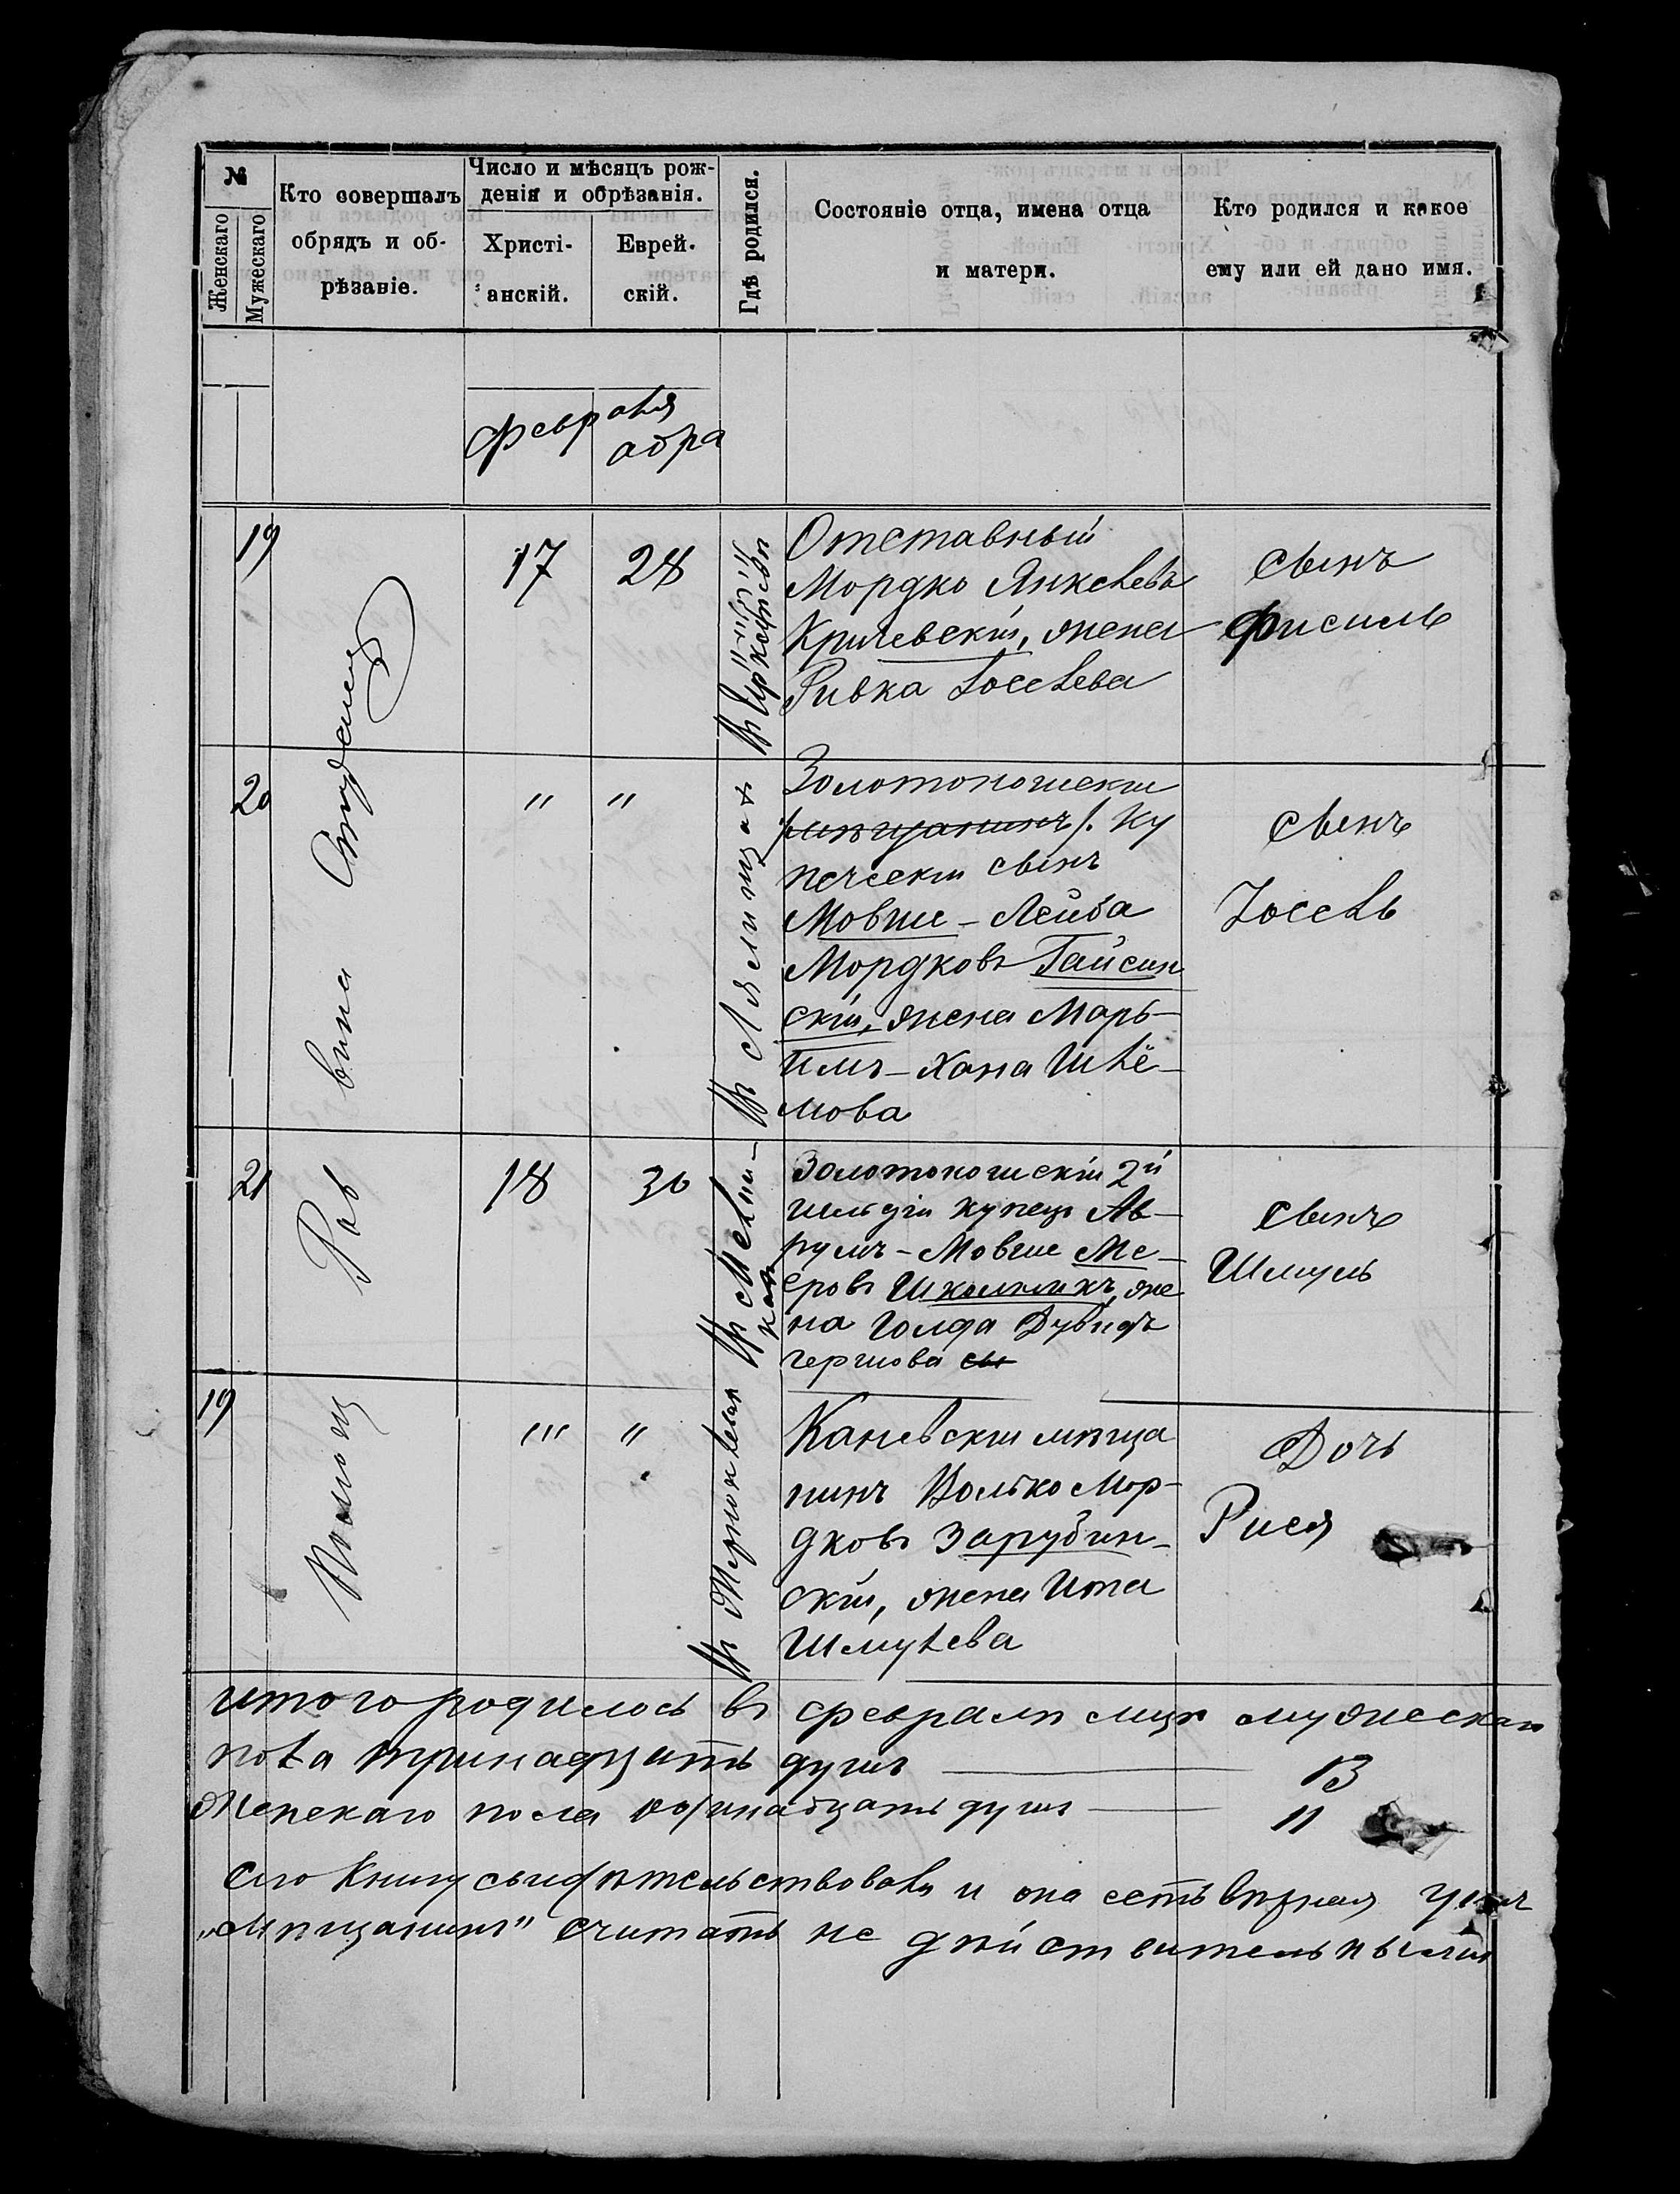 №
Женскаго
Мужескаго
Кто совершалъ
обрядъ и об-
рѣзаніе.
Число и мѣсяцъ рож-
денія и обрѣзанія.
Христі-
анскій.
Еврей-
скій.
Гдѣ родился.
Состояніе отца, имена отца
и матери.
Кто родился и какое
ему или ей дано имя.
Февраля
адра
Помощ
Рав
вина
19
17
28
Отставный
Мордко Янкелевъ
Кричевскій, жена
Ривка Іоселева
сынъ
Фисиль
20
" "
Золотоношскій
/мѣщанинъ/. Ку
печескій сынъ
Мовше-Лейба
Мордковъ Гайсин
скій, жена Марь-
имъ-Хана Шлё-
мова
сынъ
Іосель
21
18
30
Золотоношскій 2й
гильдіи купецъ Ав-
румъ-Мовше Ме-
еровъ Школьникъ, же
на Голда Дувидъ
гершова сы
сынъ
Шмуль
19
" "
Каневскій мѣща
нинъ Волько Мор-
дковъ Зарубин-
скій, жена Ита
Шмулева
Дочь
Рися
Итого родилось въ февралѣ мцѣ мужескаго
пола тринадцать душъ — 13
Женскаго пола одинадцать душъ — 11
Сію Книгу свидѣтельствовалъ и она есть вѣрная
„Мѣщанинъ" считать не дѣйствительнымъ